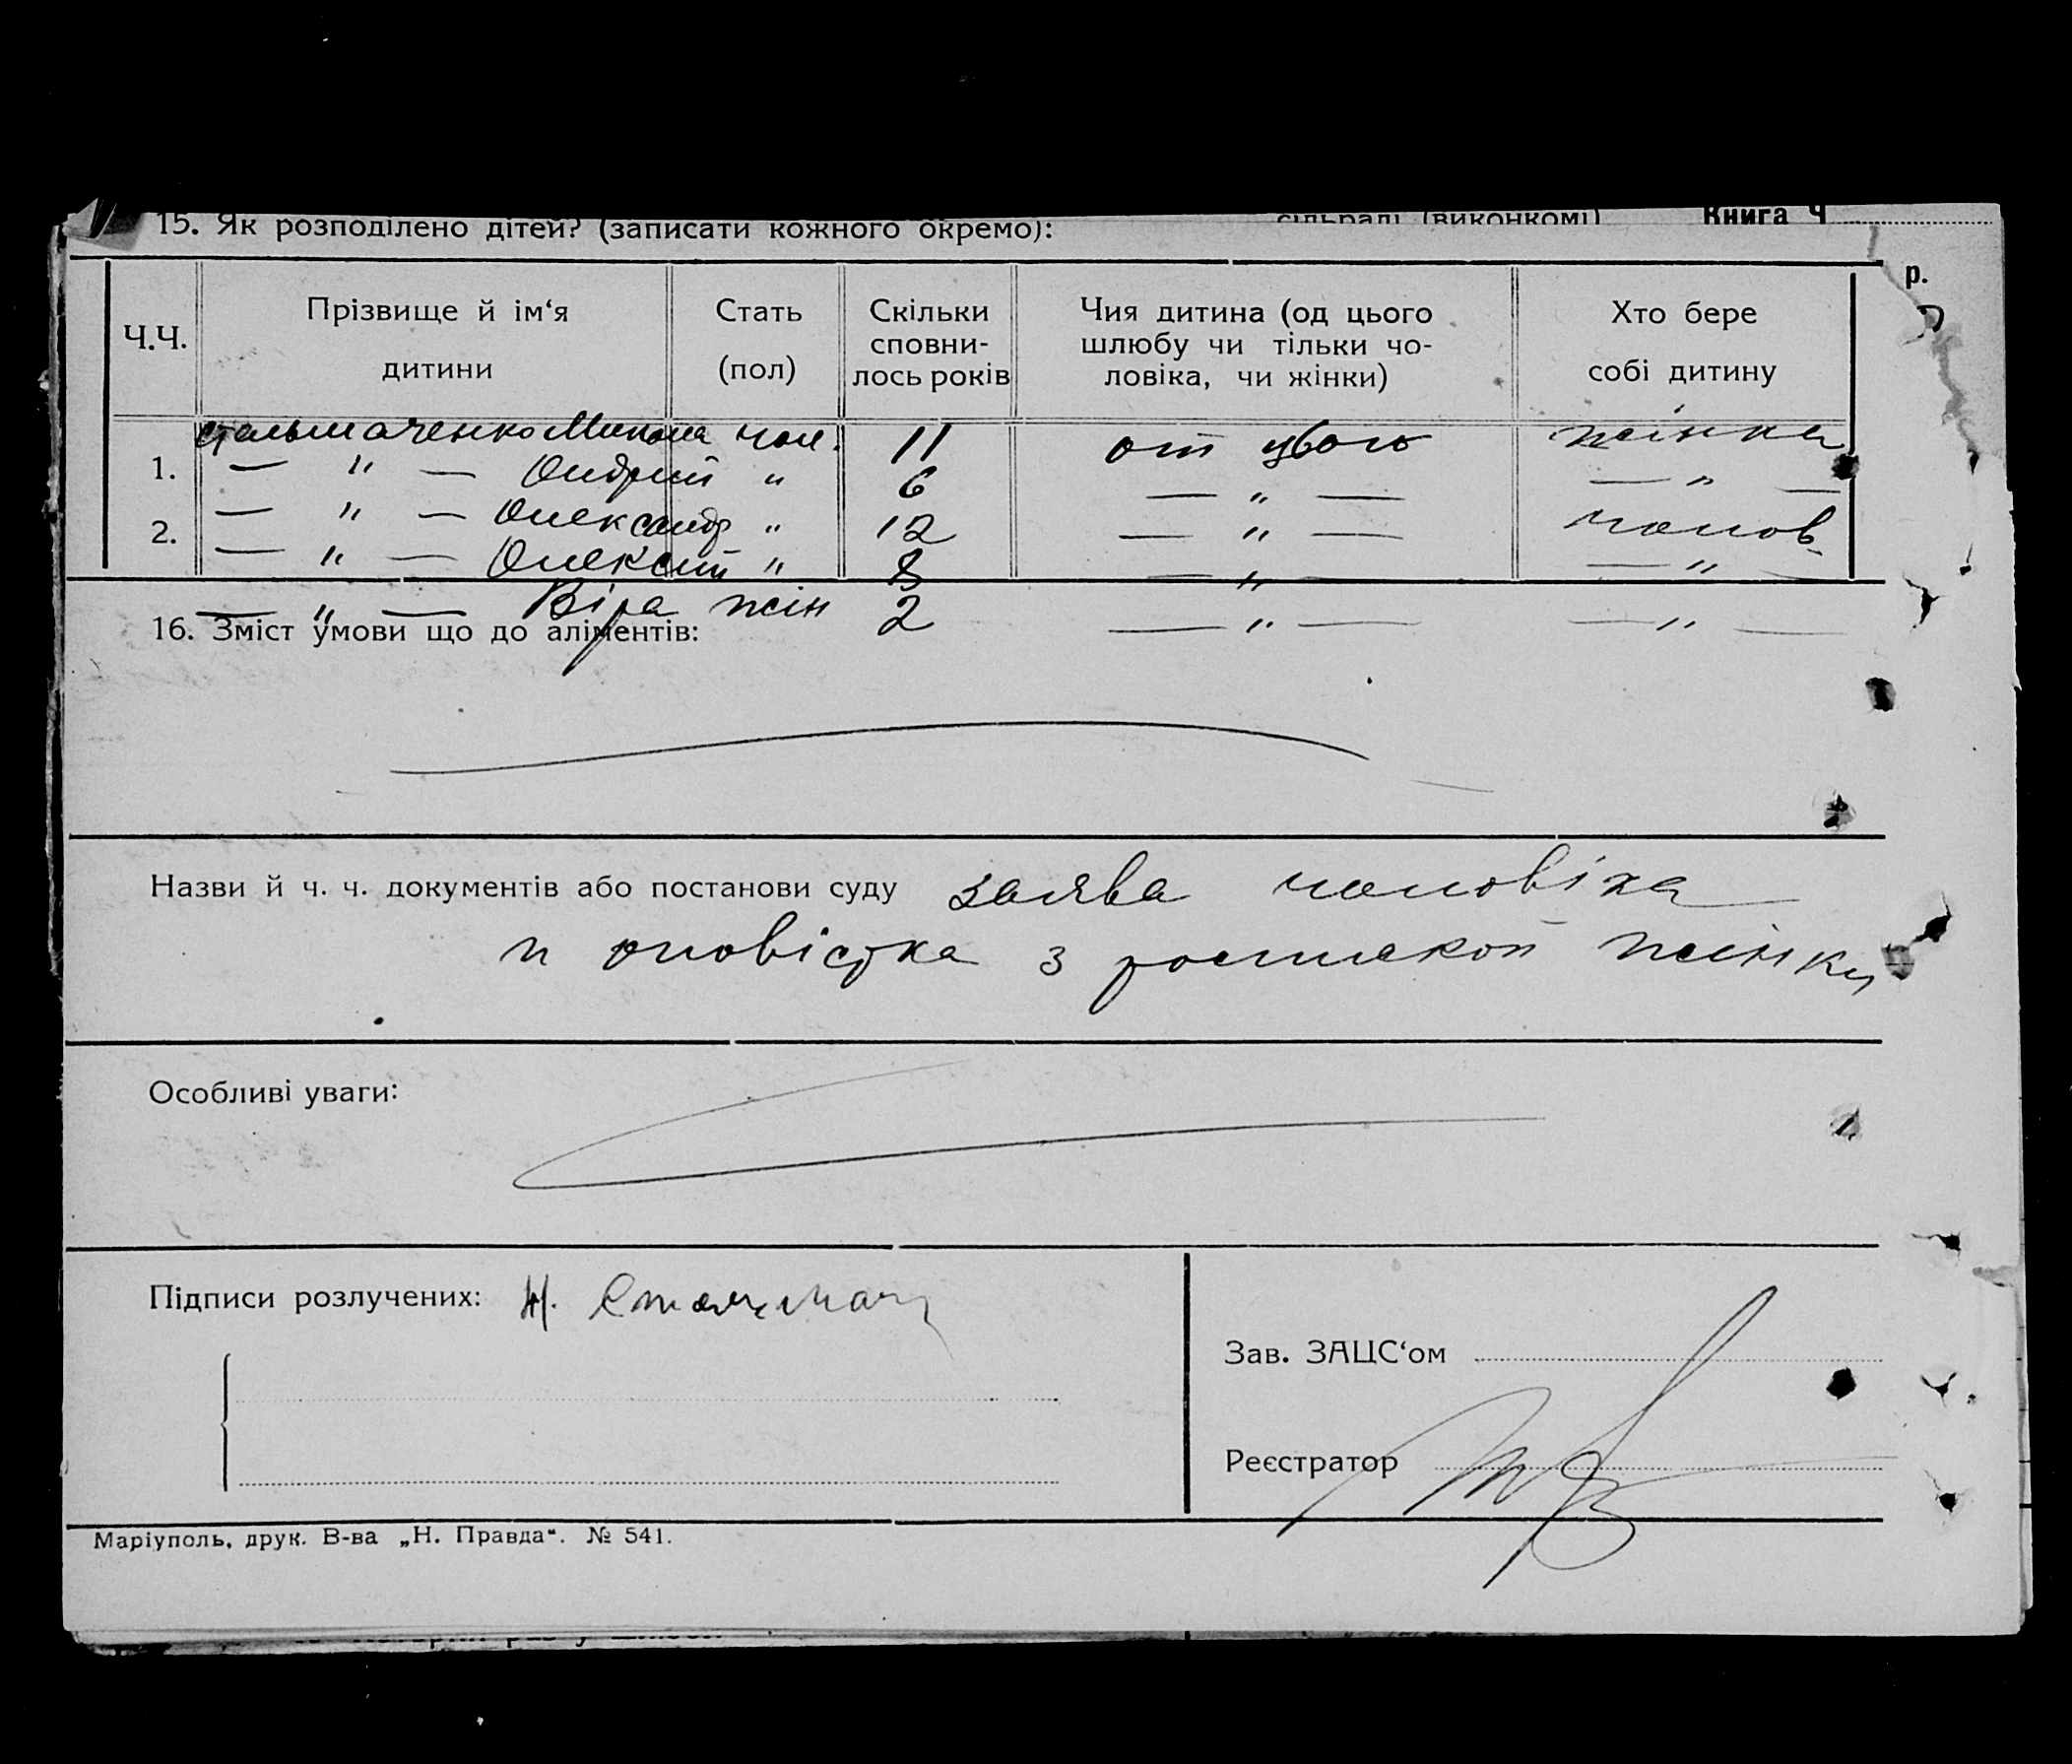 сільраді (виконкомі) Книга Ч
15. Як розподілено дітей? (записати кожного окремо):
р.
Ч.Ч. Прізвище й ім‘я дитини Стать (пол) Скільки сповни- лось років Чия дитина (од цього шлюбу чи тільки чо- ловіка, чи жінки) Хто бере собі дитину
Стальмаченко Микола чол. 11 от цього жінка
1. — " — Андрий " 6 — " — — " —
2. — " — Олександр " 12 — " — чолов.
— " — Олексій " 8 — " — — " —
— " — Віра жін 2 — " — — " —
16. Зміст умови що до аліментів:
Назви й ч. ч. документів або постанови суду заява чоловіка
и оповістка з роспиской жінки
Особливі уваги:
Підписи розлучених:
Зав. ЗАЦС‘ом
Реєстратор
Маріуполь, друк. В-ва „Н. Правда“. № 541.